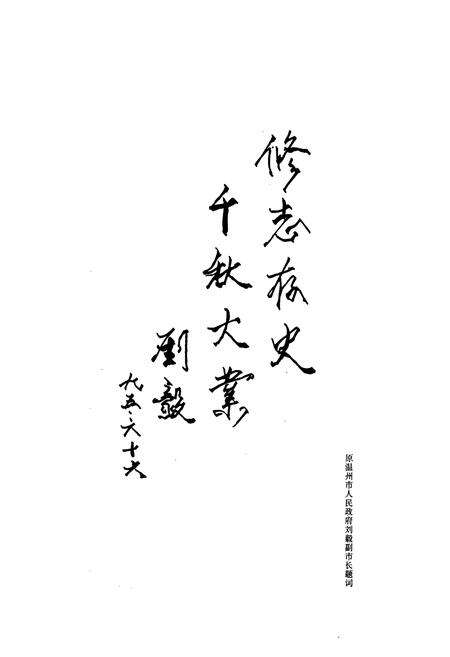 修志存史
千秋大業
劉毅
九五·六·十六
原温州市人民政府刘毅副市长题词